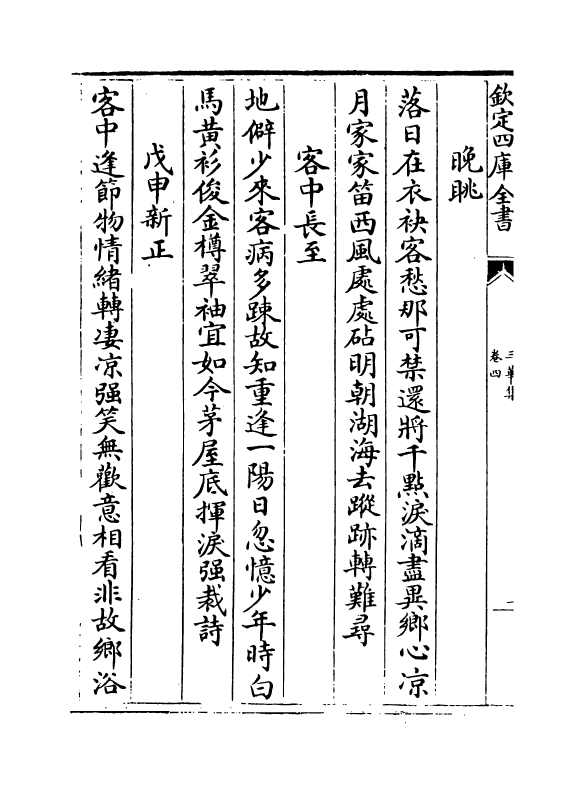 欽定四庫全書
三華集
卷四
二
晚眺
落日在衣袂客愁那可禁還將千點淚滴盡異鄉心凉
月家家笛西風處處砧明朝湖海去蹤跡轉難尋
客中長至
地僻少來客病多踈故知重逢一陽日忽憶少年時白
馬黃衫俊金樽翠袖宜如今茅屋底揮淚强裁詩
戊申新正
客中逢節物情緒轉凄凉强笑無歡意相看非故鄉浴